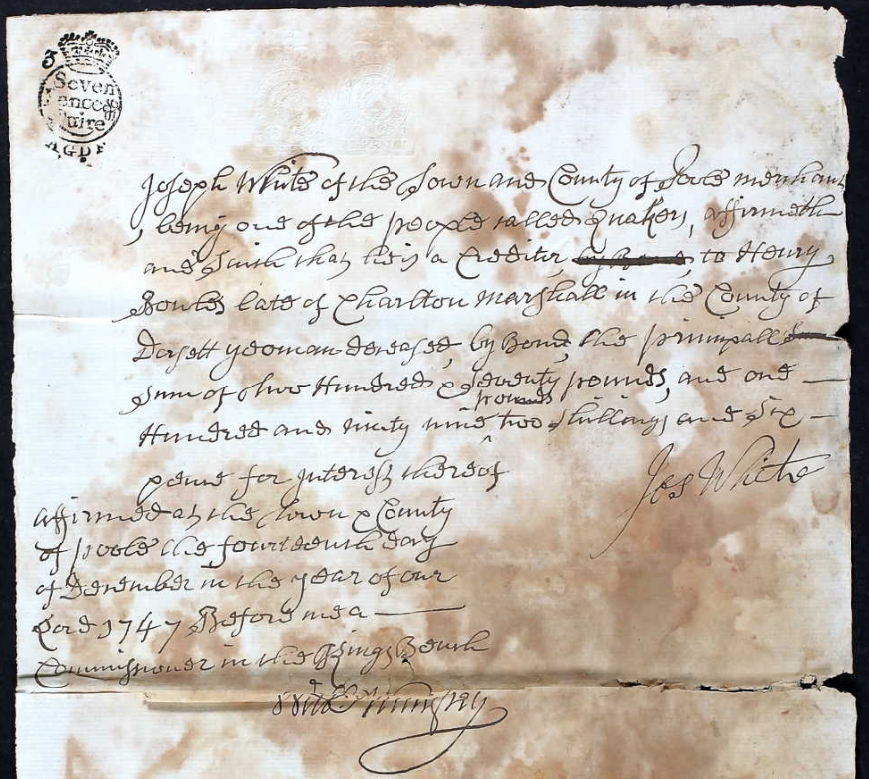 Seven
ence &
uire
AGDF
Joseph White of the Town and County of Poole merchant
, being one of the people called Quakers, affirmeth
and Saith that he is a Creditor, to Henry
Bowles late of Charlton Marshall in the County of
Dorsett yeoman deceased, by Bond, the principall
Sum of two Hundred & Seventy pounds, and one
pounds
Hundred and ninty nine ^ two shillings and Six
pence for Interest thereof
Jos White
affirmed at the Town & County
of poole the fourteenth day
of December in the year of our
Lord 1747 Before me a
Commissioner in the Kings Bench